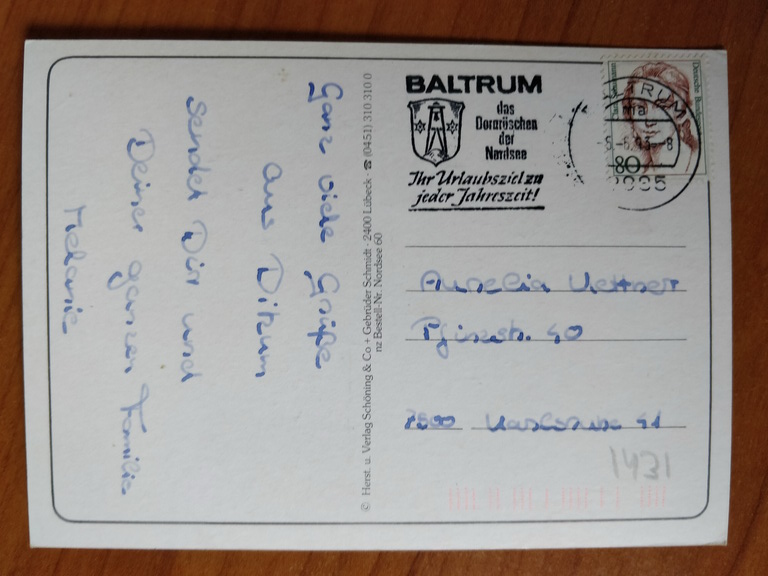 Ganz viele Grüße
aus Ditzum
sendet Dir und
Deiner ganzen Familie
Melanie
© Herst. u. Verlag Schöning & Co + Gebrüder Schmidt · 2400 Lübeck · ☎ (0451) 310 310 0
nz Bestell-Nr. Nordsee 60
BALTRUM
das
Dornröschen
der
Nordsee
Ihr Urlaubsziel zu
jeder Jahreszeit!
TRUM
-6.93-8
Deutsche
80
Aurelia
40
7500 Karlsruhe 41
1431